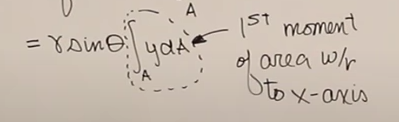 = γ sinθ ∫ y dA ← 1ST moment
A
A
of area w/r
to x-axis